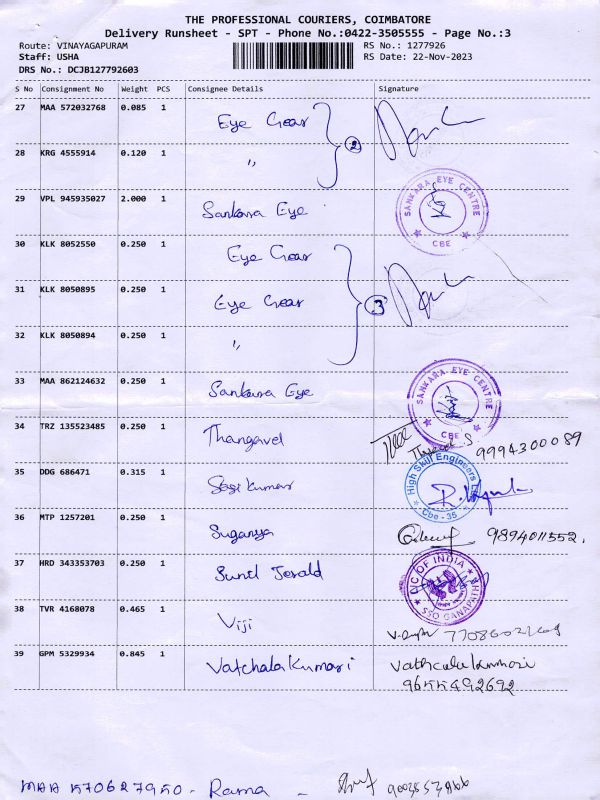 THE PROFESSIONAL COURIERS, COIMBATORE
Delivery Runsheet - SPT - Phone No.:0422-3505555 - Page No.:3
Route: VINAYAGAPURAM RS No.: 1277926
Staff: USHA RS Date: 22-Nov-2023
DRS No.: DCJB127792603
S No Consignment No Weight PCS Consignee Details Signature
27 MAA 572032768 0.085 1 Eye Gear
2
28 KRG 4555914 0.120 1 "
29 VPL 945935027 2.000 1 Sankara Eye
SANKARA EYE CENTRE
CBE
30 KLK 8052550 0.250 1 Eye Gear
31 KLK 8050895 0.250 1 Eye Gear
3
32 KLK 8050894 0.250 1 "
33 MAA 862124632 0.250 1 Sankara Eye
SANKARA EYE CENTRE
CBE
34 TRZ 135523485 0.250 1 Thangavel
9994300089
35 DDG 686471 0.315 1 Sasi Kumar
High Skill Engineers
Cbe - 35
36 MTP 1257201 0.250 1 Suganya
9894011552.
37 HRD 343353703 0.250 1 Sunil Jerald
LIC OF INDIA
SSO GANAPATHY
38 TVR 4168078 0.465 1 Viji
39 GPM 5329934 0.845 1 Vatchala Kumari
MAA 570627950 - Rama -